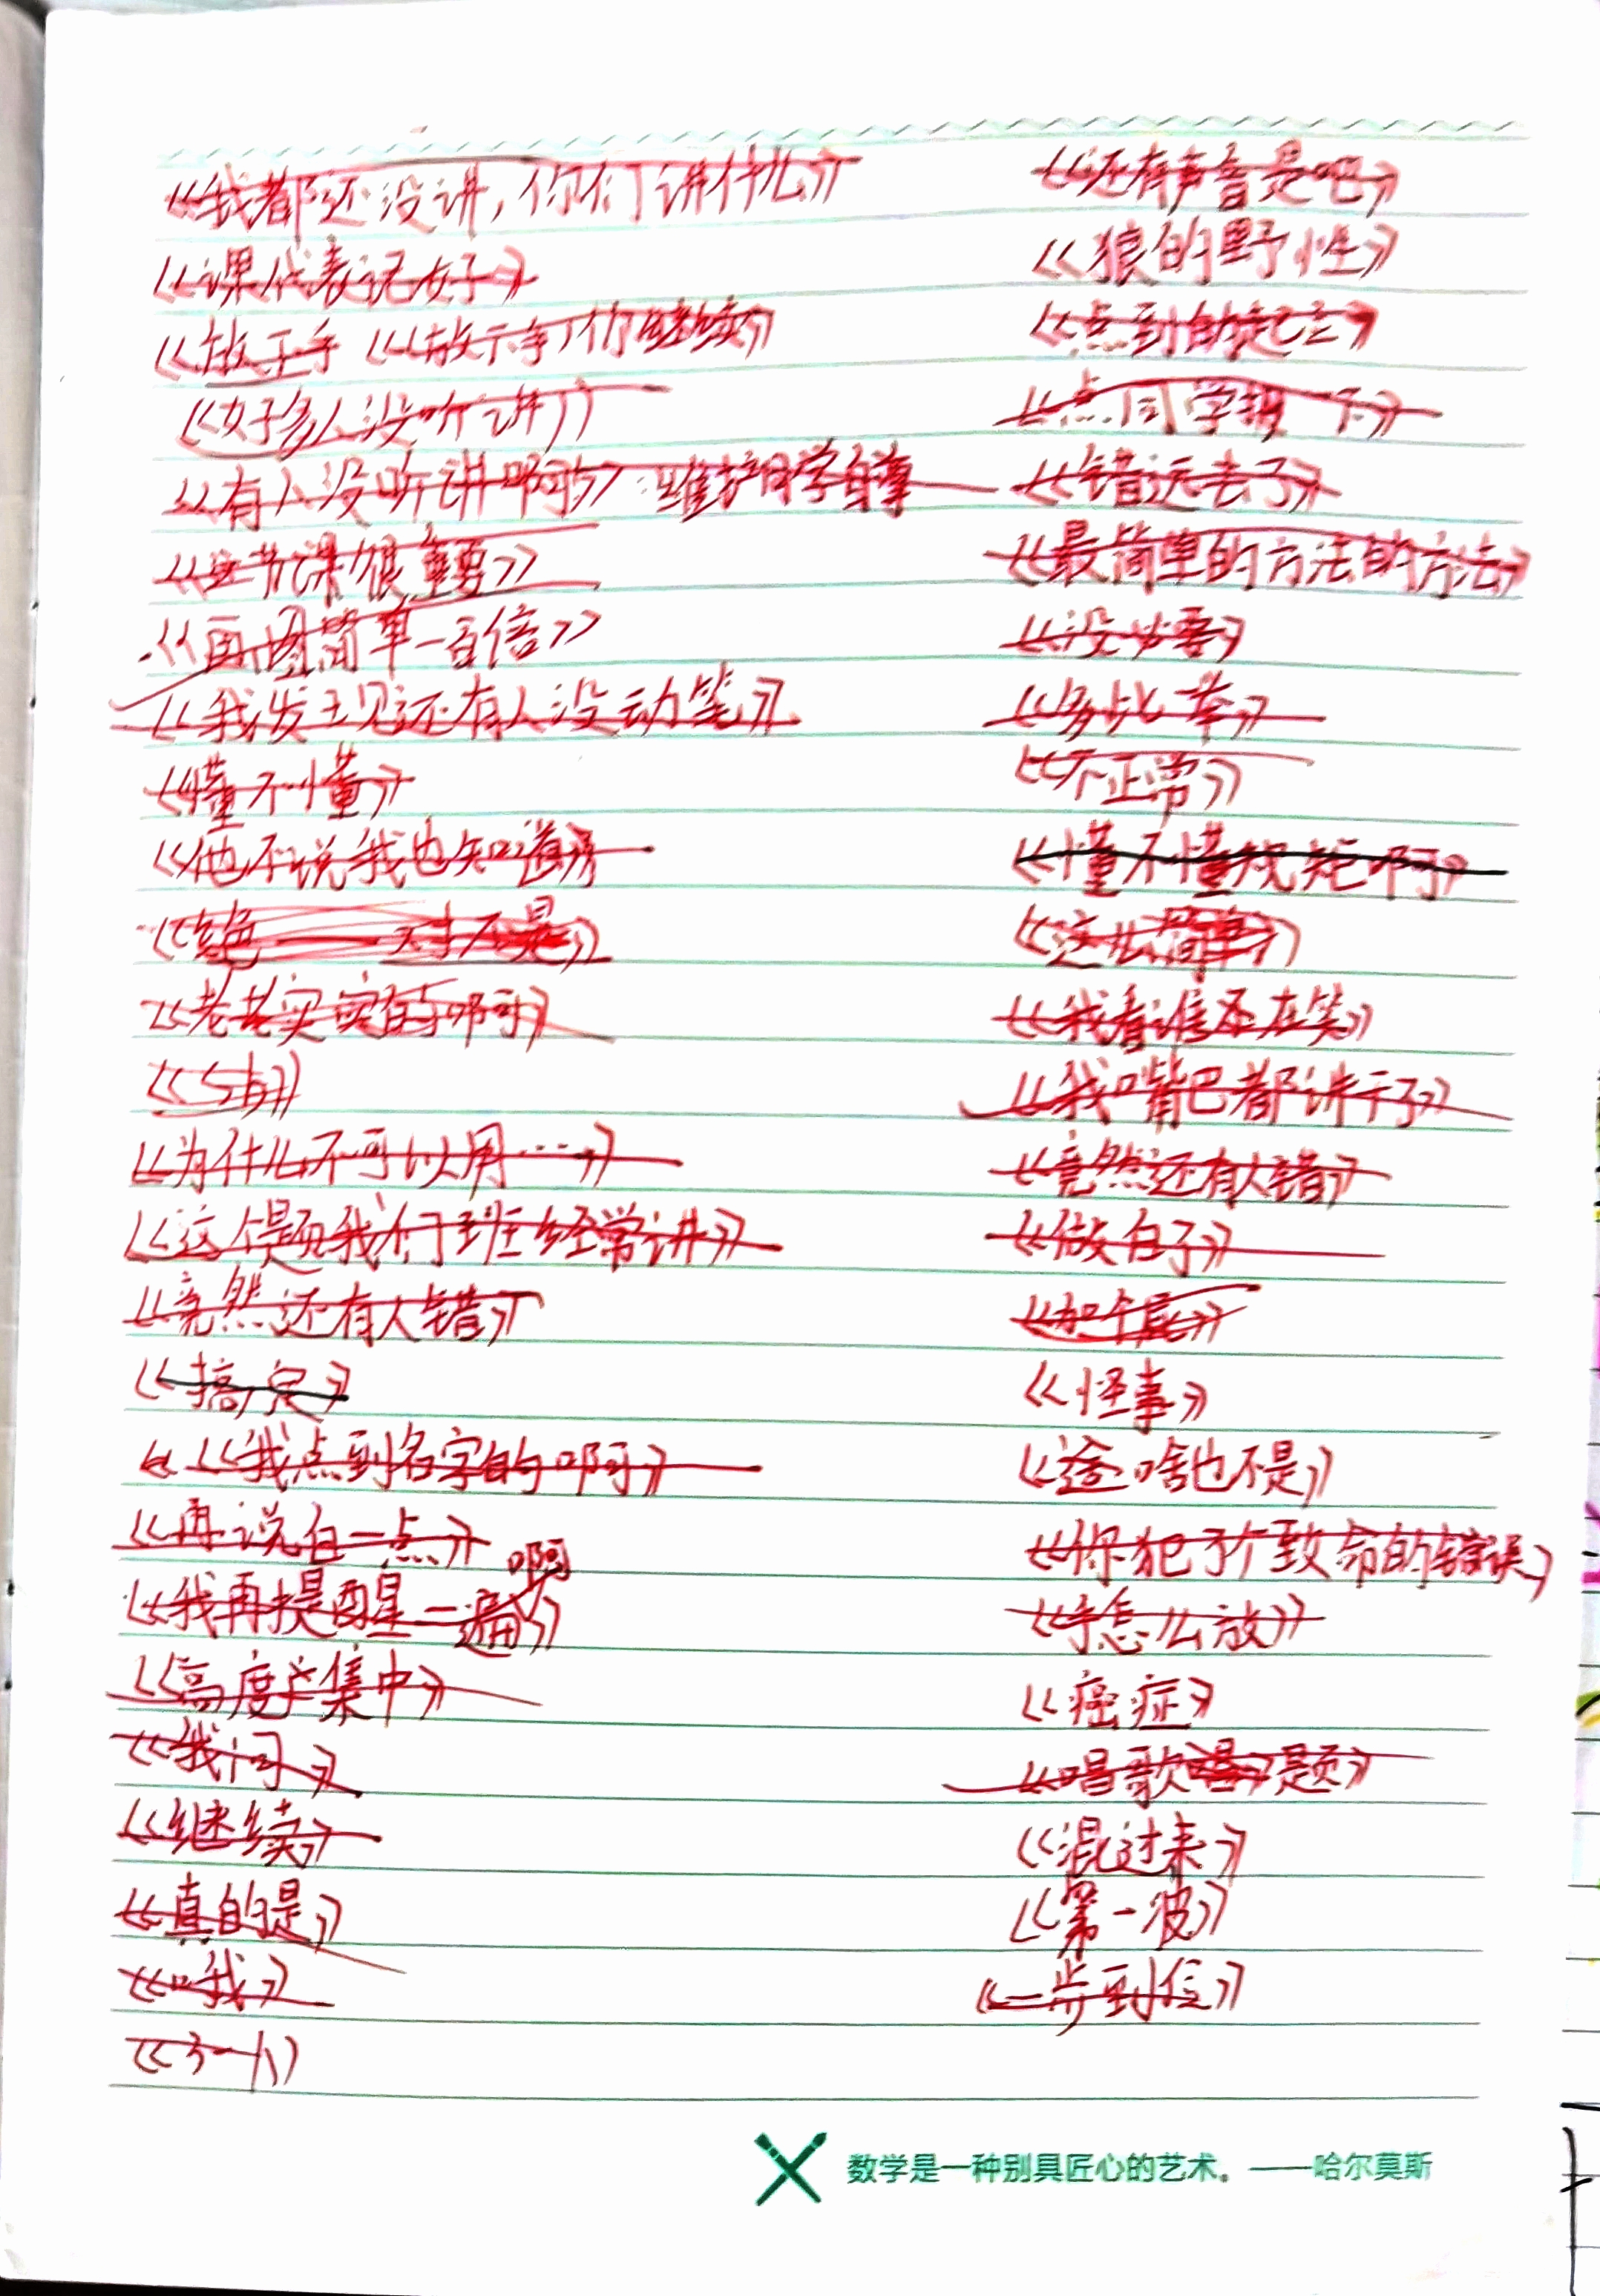 《我都还没讲，你们讲什么》
《课代表记好》
《放下手《《放下手》你继续》
《好多人没听讲》
《有人没听讲啊》维护同学自尊
《这节课很重要》
《画图简单一百倍》
《我发现还有人没动笔》
《懂不懂》
《他不说我也知道》
《绝——对不是》
《老老实实的啊》
《为什么不可以用……》
《这个题我们班经常讲》
《竟然还有人错》
《搞定》
《我点到名字的啊》
《再说白一点》
《我再提醒一遍啊》
《高度集中》
《我问》
《继续》
《真的是》
《哦》
《还有声音是吧》
《狼的野性》
《点到的起立》
《点同学报一下》
《错远去了》
《最简单的方法的方法》
《没必要》
《多此一举》
《不正常》
《懂不懂规矩啊》
《这么简单》
《我看谁还在笑》
《我嘴巴都讲干了》
《竟然还有人错》
《做白了》
《加个》
《怪事》
《啥也不是》
《你犯了个致命的错误》
《手怎么放》
《癌症》
《唱歌题》
《混过来》
《第一波》
《一步到位》
数学是一种别具匠心的艺术。——哈尔莫斯